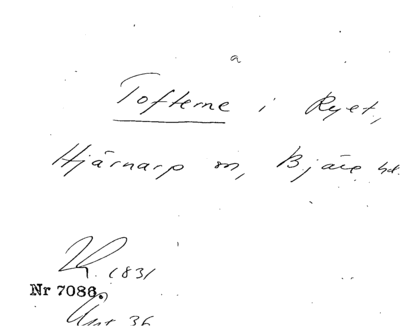 a
Tofterne i Ryet,
Hjärnarp sn, Bjäre hd.
1831
Nr 7086.
36